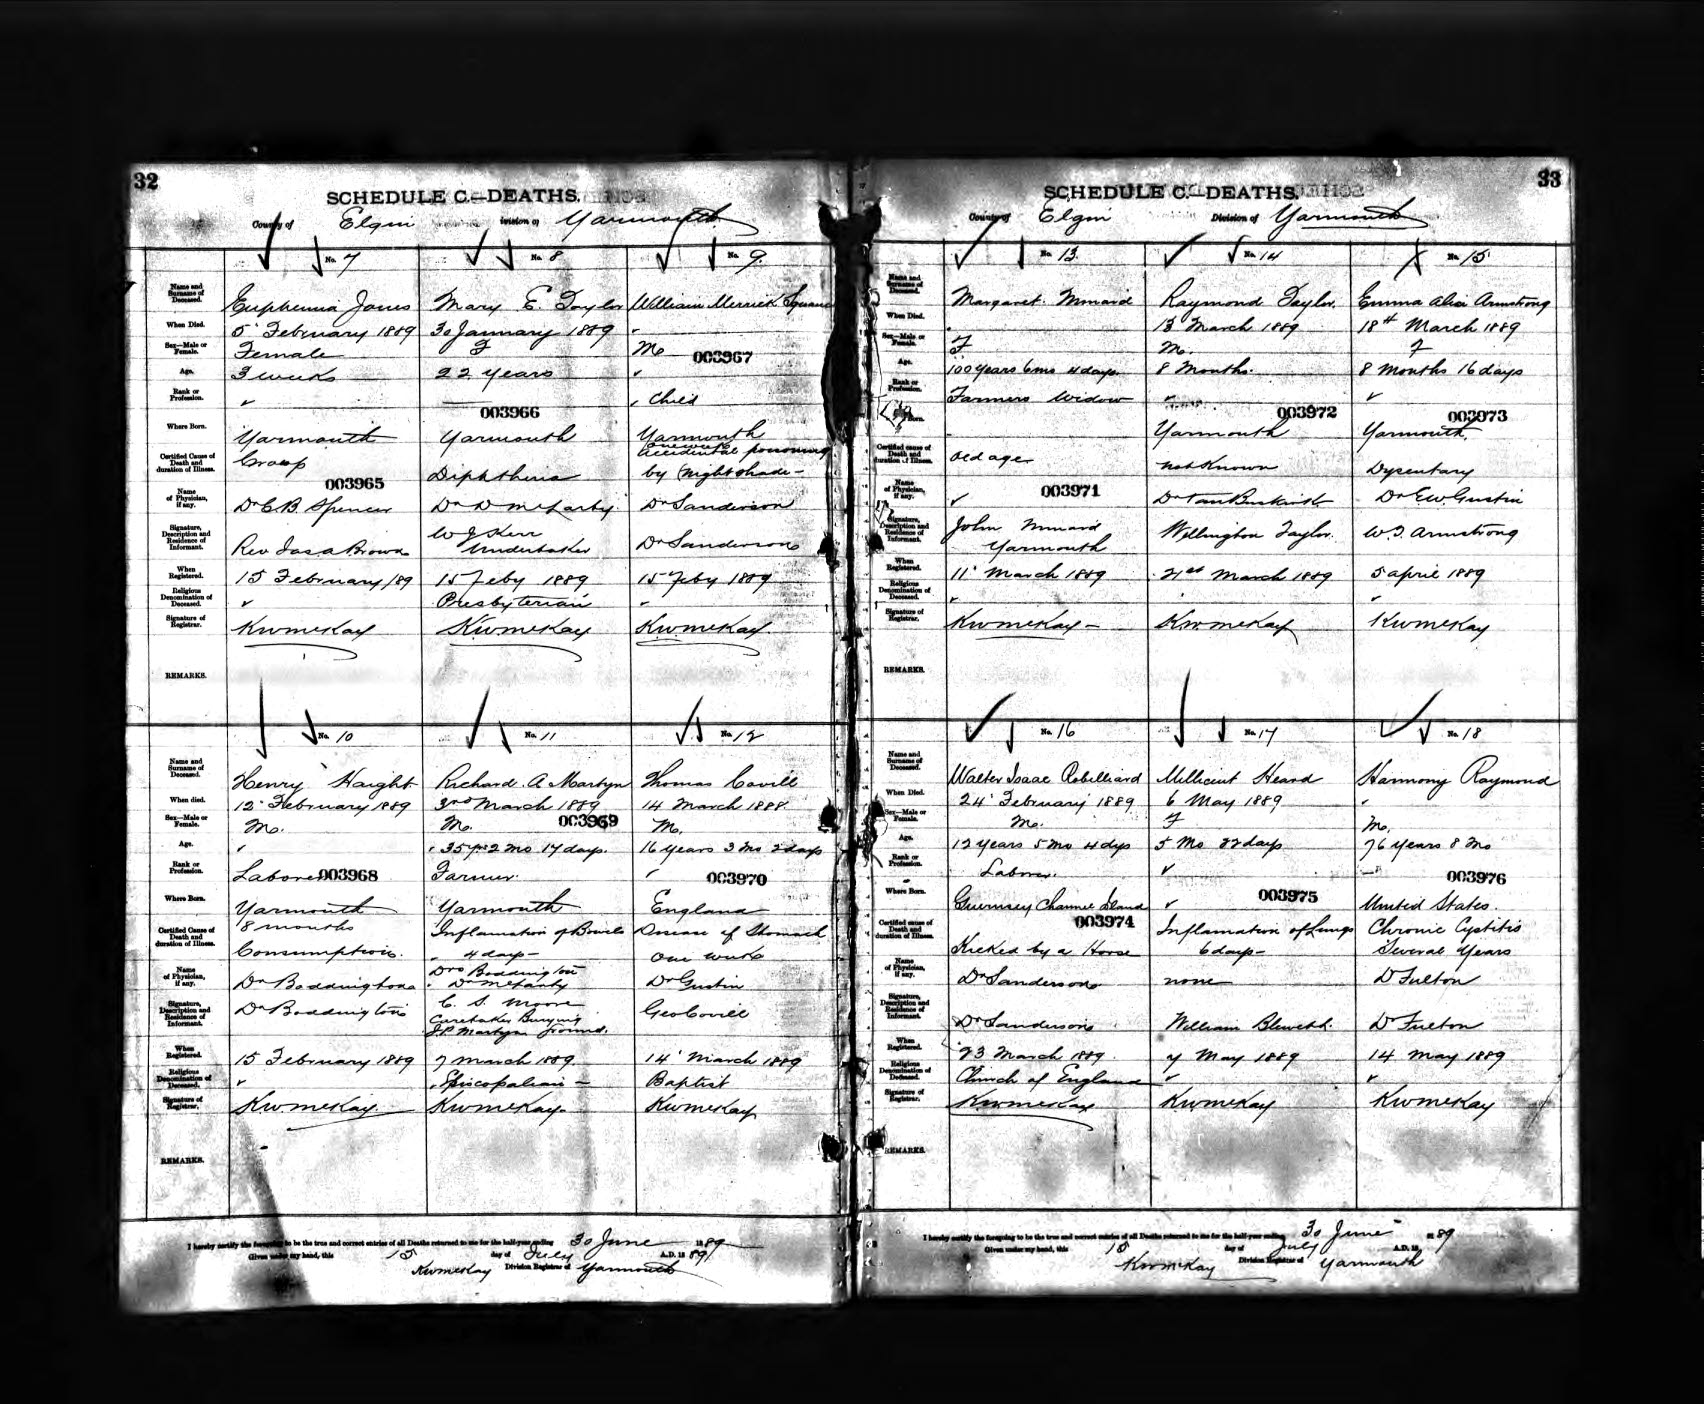 32
SCHEDULE C.—DEATHS.
County of Elgin Division of Yarmouth
No. 7 No. 8 No. 9
Name and Surname of Deceased. Euphemia Jones Mary E. Taylor William Merrick
When Died. 5 February 1889 30 January 1889 "
Sex—Male or Female. Female F M
003967
Age. 3 weeks 22 years
Rank or Profession. Child
003966
Where Born. Yarmouth Yarmouth Yarmouth
Certified Cause of Death and duration of Illness. Croup Diphtheria accidental poisoning by Nightshade-
003965
Name of Physician, if any. Dr C.B. Spencer Dr D McLarty Dr Sanderson
Signature, Description and Residence of Informant. Rev Jas a Brown W J Kerr Undertaker Dr Sanderson
When Registered. 15 February/89 15 Feby 1889 15 Feby 1889
Religious Denomination of Deceased. Presbyterian
Signature of Registrar. KWMcKay KWMcKay KWMcKay
REMARKS.
No. 10 No. 11 No. 12
Name and Surname of Deceased. Henry Haight Richard A Martyn Thomas Covill
When died. 12 February 1889 3rd March 1889 14 March 1888
Sex—Male or Female. M. M. M.
003969
Age. 35 yrs 2 Mo 17 days. 16 years 3 Mo 2 days
Rank or Profession. Laborer Farmer
003968 003970
Where Born. Yarmouth Yarmouth England
Certified Cause of Death and duration of Illness. 8 months Consumption. Inflamation of Bowels 4 days- Disease of Stomach one week
Name of Physician, if any. Dr Boddington Drs Boddington Dr McLarty Dr Gustin
Signature, Description and Residence of Informant. Dr Boddington C. S. Moore Caretaker Burying Ground. J.P. Martyn Geo Covill
When Registered. 15 February 1889 7 March 1889 14 March 1889
Religious Denomination of Deceased. Episcopalian- Baptist
Signature of Registrar. KWMcKay KWMcKay KWMcKay
REMARKS.
I hereby certify the foregoing to be the true and correct entries of all Deaths returned to me for the half-year ending 30 June 1889
Given under my hand, this 15 day of July A.D. 1889
KWMcKay Division Registrar of Yarmouth
33
SCHEDULE C.—DEATHS.
County of Elgin Division of Yarmouth
No. 13 No. 14 No. 15
Name and Surname of Deceased. Margaret Minard Raymond Taylor. Emma Alice Armstrong
When Died. 13 March 1889 18th March 1889
Sex—Male or Female. F M. F
Age. 100 years 6 mo 4 days 8 Months. 8 months 16 days
Rank or Profession. Farmers Widow
003972 003973
Where Born. Yarmouth Yarmouth
Certified cause of Death and duration of Illness. old age not Known Dysentary
003971
Name of Physician, if any. Dr Van Buskirk Dr E.W. Gustin
Signature, Description and Residence of Informant. John Minard Yarmouth Wellington Taylor. W. J. Armstrong
When Registered. 11 March 1889 21st March 1889 5 april 1889
Religious Denomination of Deceased.
Signature of Registrar. KWMcKay- KWMcKay KWMcKay
REMARKS.
No. 16 No. 17 No. 18
Name and Surname of Deceased. Walter Isaac Robilliard Millicent Heard Harmony Raymond
When Died. 24 February 1889 6 May 1889
Sex—Male or Female. M. F M.
Age. 12 years 5 Mo 4 dys 5 Mo 22 days 76 years 8 Mo
Rank or Profession. Laborer
003975 003976
Where Born. Guernsey Channel Island United States.
003974
Certified cause of Death and duration of Illness. Kicked by a Horse Inflamation of Lungs 6 days- Chronic Cystitis Several Years
Name of Physician, if any. Dr Sanderson none Dr Fulton
Signature, Description and Residence of Informant. Dr Sanderson William Blewett Dr Fulton
When Registered. 23 March 1889 7 May 1889 14 May 1889
Religious Denomination of Deceased. Church of England
Signature of Registrar. KWMcKay KWMcKay KWMcKay
REMARKS.
I hereby certify the foregoing to be the true and correct entries of all Deaths returned to me for the half-year ending 30 June 1889
Given under my hand, this 15 day of July A.D. 18
KWMcKay Division Registrar of Yarmouth